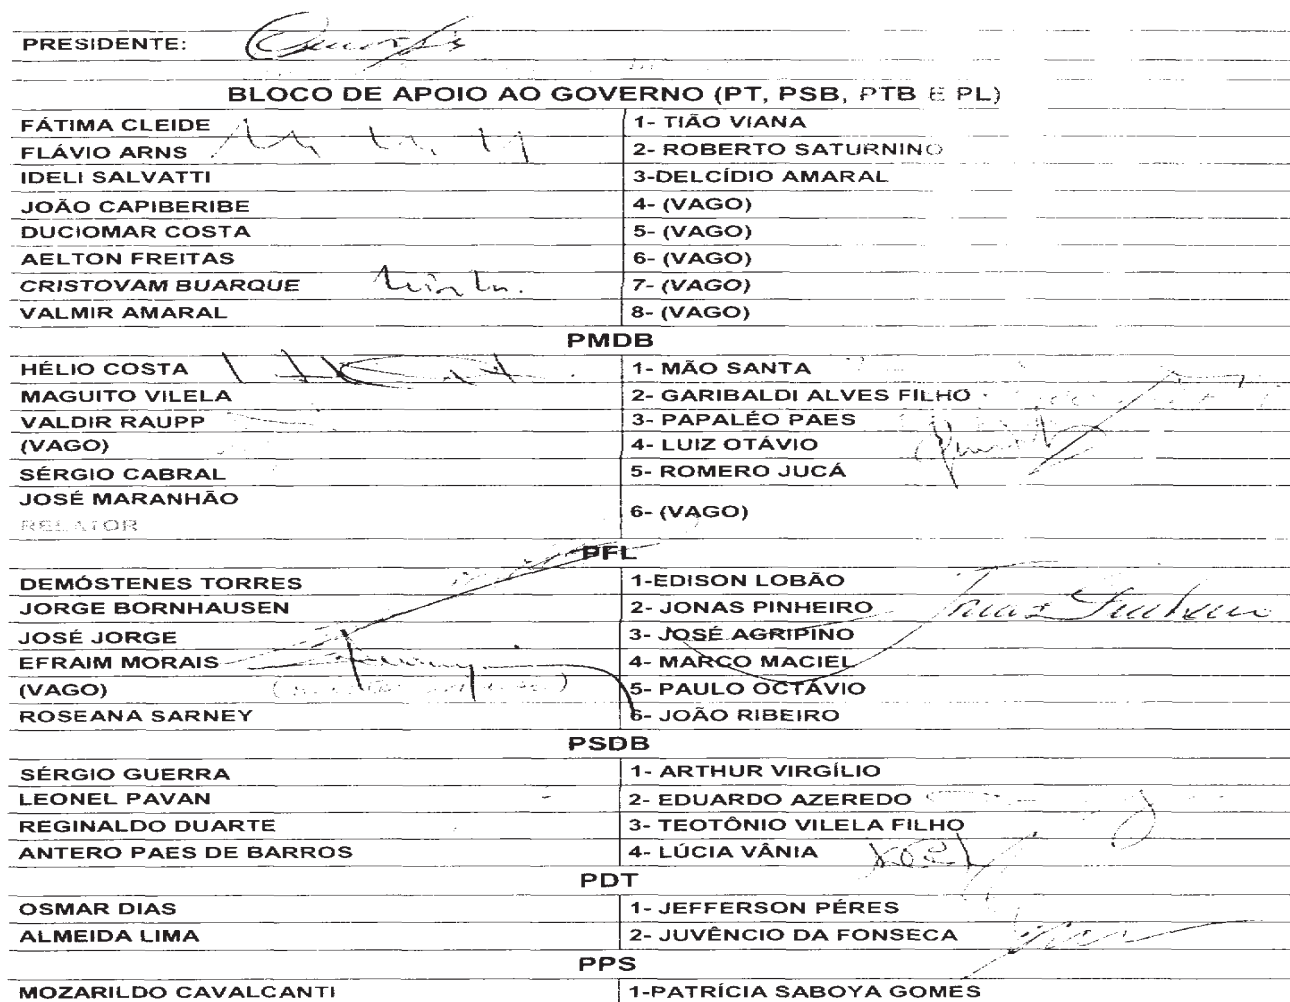 PRESIDENTE:
BLOCO DE APOIO AO GOVERNO (PT, PSB, PTB E PL)
FÁTIMA CLEIDE 1- TIÃO VIANA
FLÁVIO ARNS 2- ROBERTO SATURNINO
IDELI SALVATTI 3-DELCÍDIO AMARAL
JOÃO CAPIBERIBE 4- (VAGO)
DUCIOMAR COSTA 5- (VAGO)
AELTON FREITAS 6- (VAGO)
CRISTOVAM BUARQUE 7- (VAGO)
VALMIR AMARAL 8- (VAGO)
PMDB
HÉLIO COSTA 1- MÃO SANTA
MAGUITO VILELA 2- GARIBALDI ALVES FILHO
VALDIR RAUPP 3- PAPALÉO PAES
(VAGO) 4- LUIZ OTÁVIO
SÉRGIO CABRAL 5- ROMERO JUCÁ
JOSÉ MARANHÃO 6- (VAGO)
RELATOR
PFL
DEMÓSTENES TORRES 1-EDISON LOBÃO
JORGE BORNHAUSEN 2- JONAS PINHEIRO Jonas Pinheiro
JOSÉ JORGE 3- JOSÉ AGRIPINO
EFRAIM MORAIS 4- MARCO MACIEL
(VAGO) 5- PAULO OCTÁVIO
ROSEANA SARNEY 6- JOÃO RIBEIRO
PSDB
SÉRGIO GUERRA 1- ARTHUR VIRGÍLIO
LEONEL PAVAN 2- EDUARDO AZEREDO
REGINALDO DUARTE 3- TEOTÔNIO VILELA FILHO
ANTERO PAES DE BARROS 4- LÚCIA VÂNIA
PDT
OSMAR DIAS 1- JEFFERSON PÉRES
ALMEIDA LIMA 2- JUVÊNCIO DA FONSECA
PPS
MOZARILDO CAVALCANTI 1-PATRÍCIA SABOYA GOMES